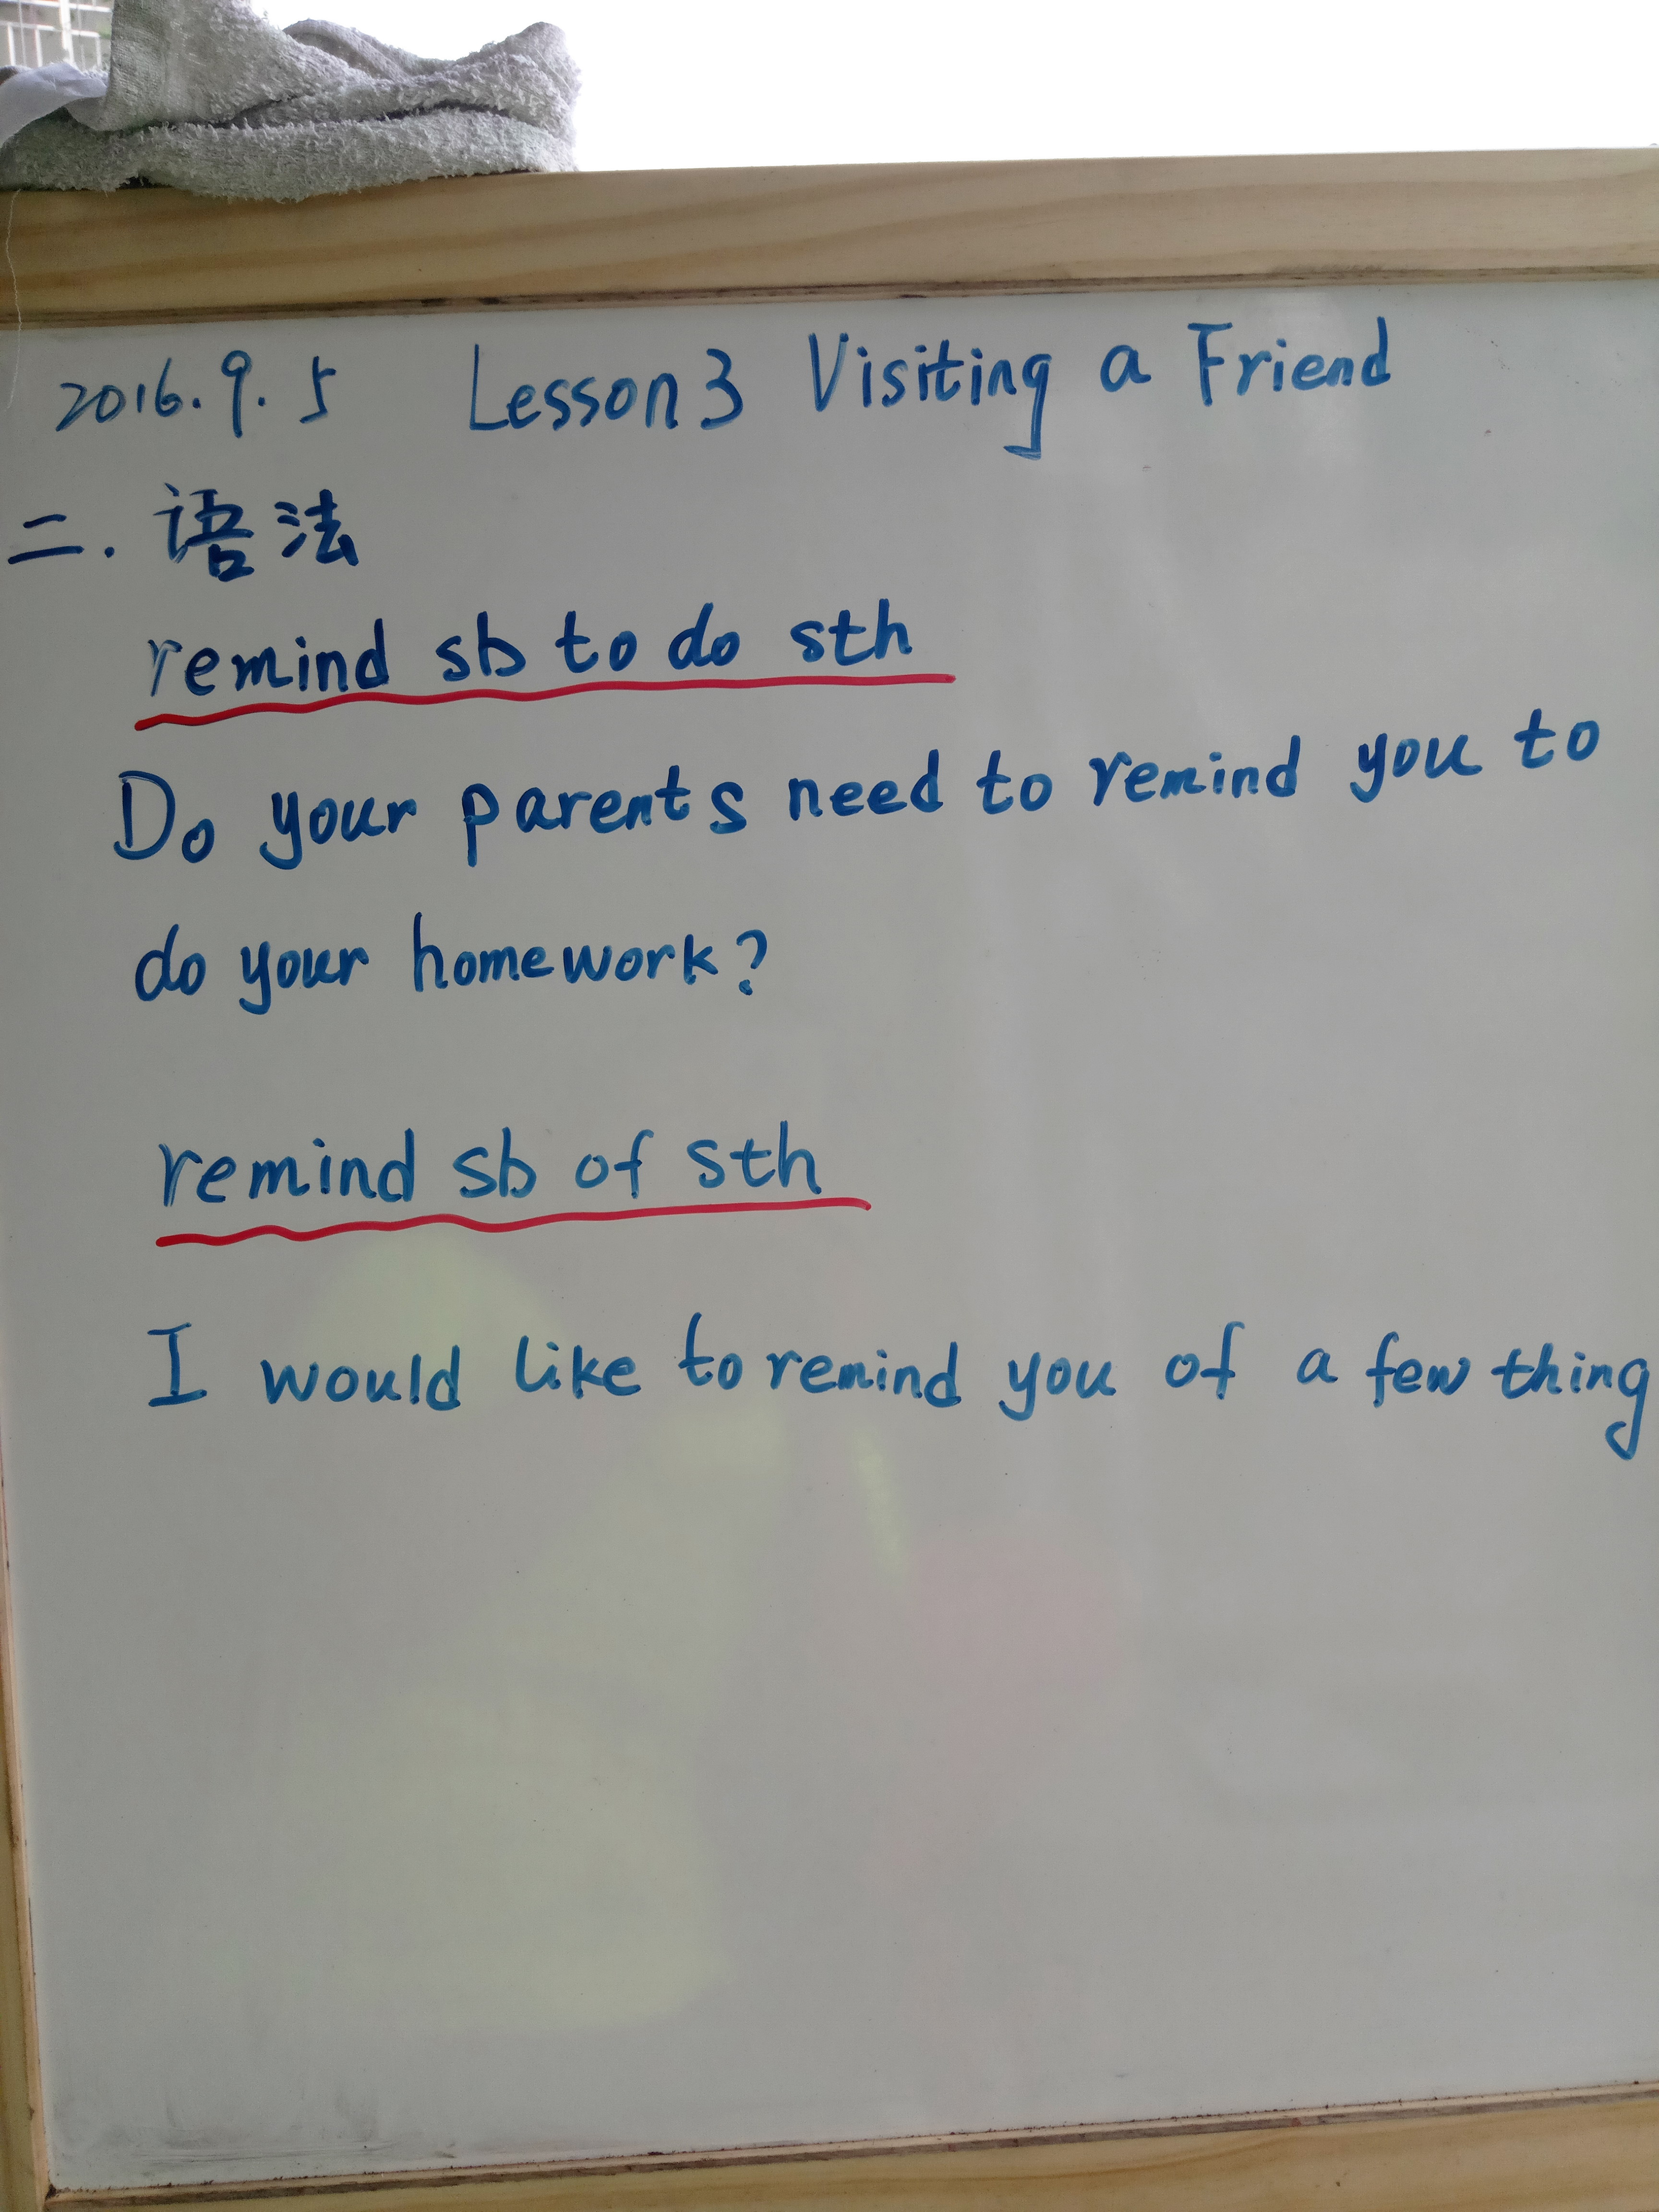 2016.9.5 Lesson 3 Visiting a Friend
二. 语法
remind sb to do sth
Do your parents need to remind you to
do your homework?
remind sb of sth
I would like to remind you of a few thing